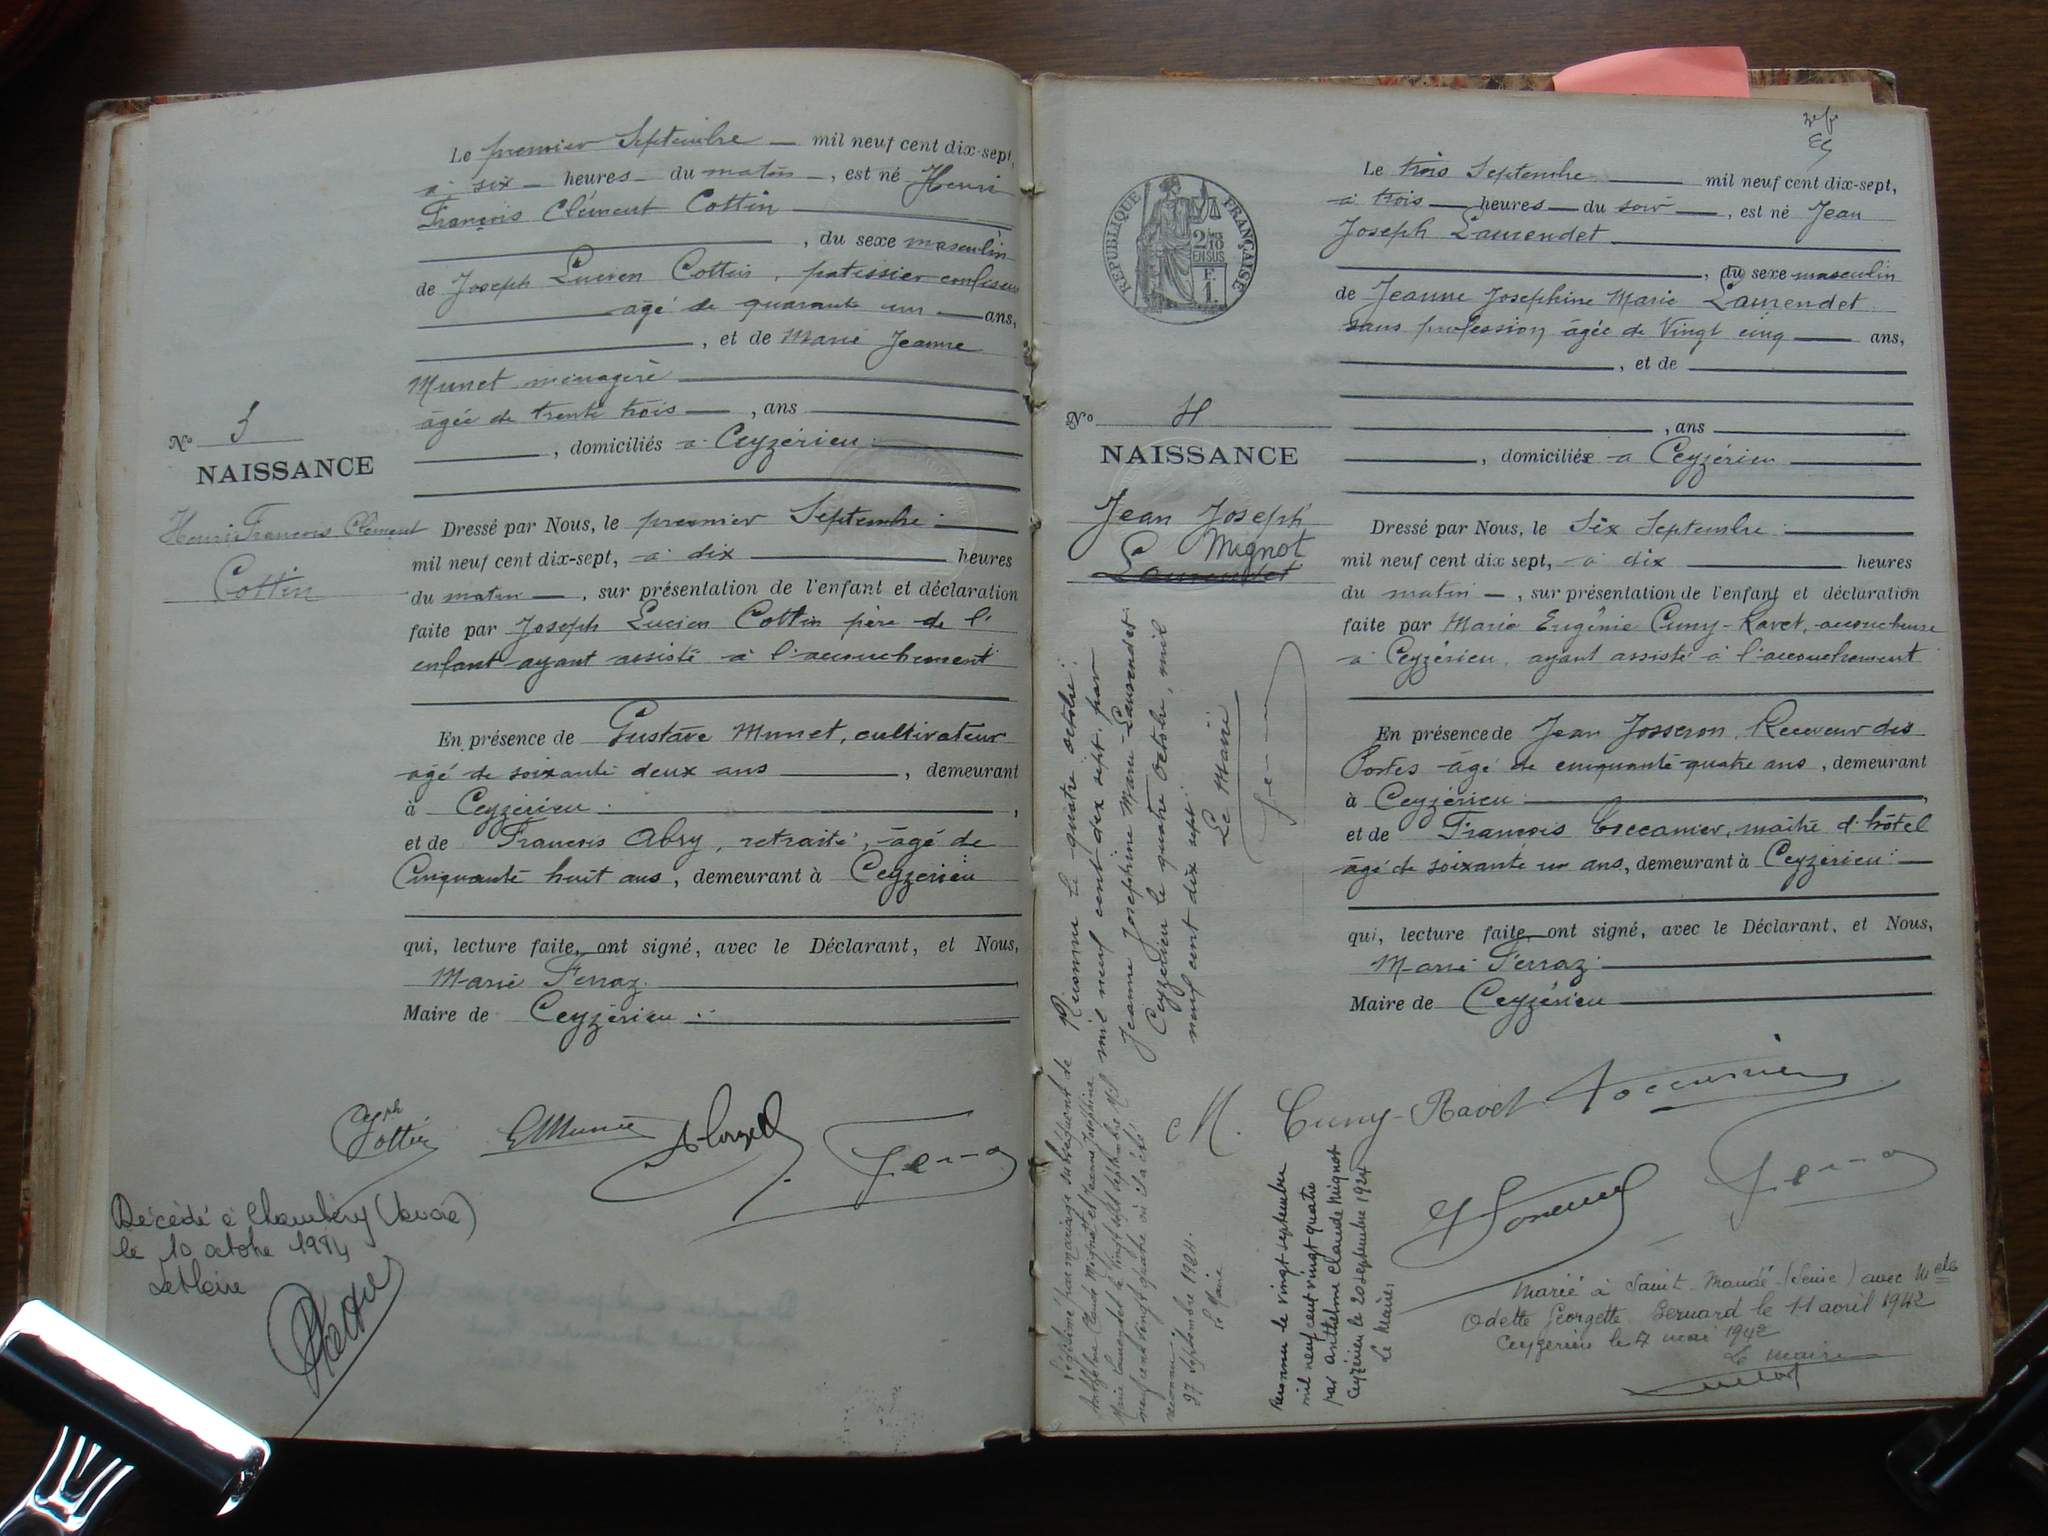 Le premier Septembre — mil neuf cent dix-sept,
à six — heures — du matin —, est né Henri
François Clément Cottin
, du sexe masculin
de Joseph Lucien Cottin, patissier confiseur
âgé de quarante un — ans,
, et de Marie Jeanne
Munet ménagère
âgée de trente trois —, ans
, domiciliés à Ceyzérieu
Nº 3
NAISSANCE
Henri François Clément
Cottin
Dressé par Nous, le premier Septembre
mil neuf cent dix-sept, à dix heures
du matin —, sur présentation de l'enfant et déclaration
faite par Joseph Lucien Cottin père de l'
enfant ayant assisté à l'accouchement
En présence de Gustave Munet, cultivateur
âgé de soixante deux ans, demeurant
à Ceyzérieu,
et de François Abry, retraité, âgé de
Cinquante huit ans, demeurant à Ceyzérieu
qui, lecture faite, ont signé, avec le Déclarant, et Nous,
Marie Ferraz
Maire de Ceyzérieu
Décédé à Chambéry (Savoie)
le 10 octobre 1984
Le Maire
RÉPUBLIQUE FRANÇAISE
Le trois Septembre mil neuf cent dix-sept,
à trois — heures — du soir —, est né Jean
Joseph Laurendet
, du sexe masculin
de Jeanne Josephine Marie Laurendet
sans profession âgée de Vingt cinq — ans,
, et de
, ans
, domiciliée à Ceyzérieu
Nº 4
NAISSANCE
Jean Joseph
Mignot
Laurendet
Dressé par Nous, le Six Septembre
mil neuf cent dix sept, à dix heures
du matin —, sur présentation de l'enfant et déclaration
faite par Marie Eugénie Cuny-Ravet, accoucheuse
à Ceyzérieu, ayant assisté à l'accouchement
En présence de Jean Josseron, Receveur des
Postes âgé de cinquante quatre ans, demeurant
à Ceyzérieu,
et de François Toccanier, maître d'hôtel
âgé de soixante un ans, demeurant à Ceyzérieu
qui, lecture faite, ont signé, avec le Déclarant, et Nous,
Marie Ferraz
Maire de Ceyzérieu
Reconnu le quatre octobre
mil neuf cent dix sept, par
Jeanne Josephine Marie Laurendet
Ceyzérieu le quatre Octobre, mil
neuf cent dix sept
Le Maire
Légitimé par mariage subséquent de
Anthelme Claude Mignot et Jeanne Joséphine
Marie Laurendet le vingt sept septembre mil
neuf cent vingt quatre où il a été
reconnu
27 septembre 1924.
le Maire
M. Cuny-Ravet Toccanier
Reconnu le vingt septembre
mil neuf cent vingt quatre
par Anthelme Claude Mignot
Ceyzérieu le 20 septembre 1924
Le Maire,
Marié à Saint-Mandé (Seine) avec Melle
Odette Georgette le 11 avril 1942
Ceyzerieu le 7 mai 1942
Le maire